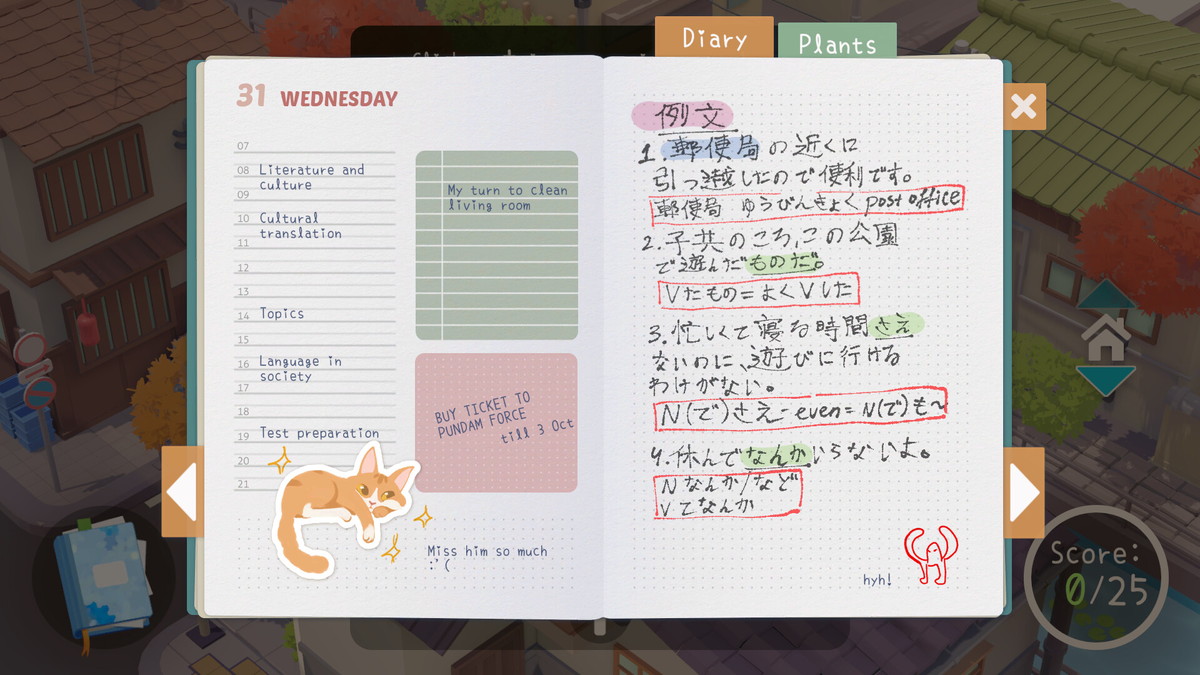 Diary
Plants
31 WEDNESDAY
07
08 Literature and
culture
09
10 Cultural
translation
11
12
13
14 Topics
15
16 Language in
society
17
18
19 Test preparation
20
21
My turn to clean
living room
BUY TICKET TO
PUNDAM FORCE
till 3 Oct
Miss him so much
:'(
例文
1.郵便局の近くに
引っ越したので便利です。
郵便局 ゆうびんきょく post office
2.子共のころ、この公園
で遊んだものだ。
Vたもの=よくVした
3.忙しくて寝る時間さえ
ないのに、遊びに行ける
わけがない。
N(で)さえ-even=N(で)も~
4.休んでなんかいらないよ。
Nなんか/など
Vてなんか
hyh!
Score:
0/25